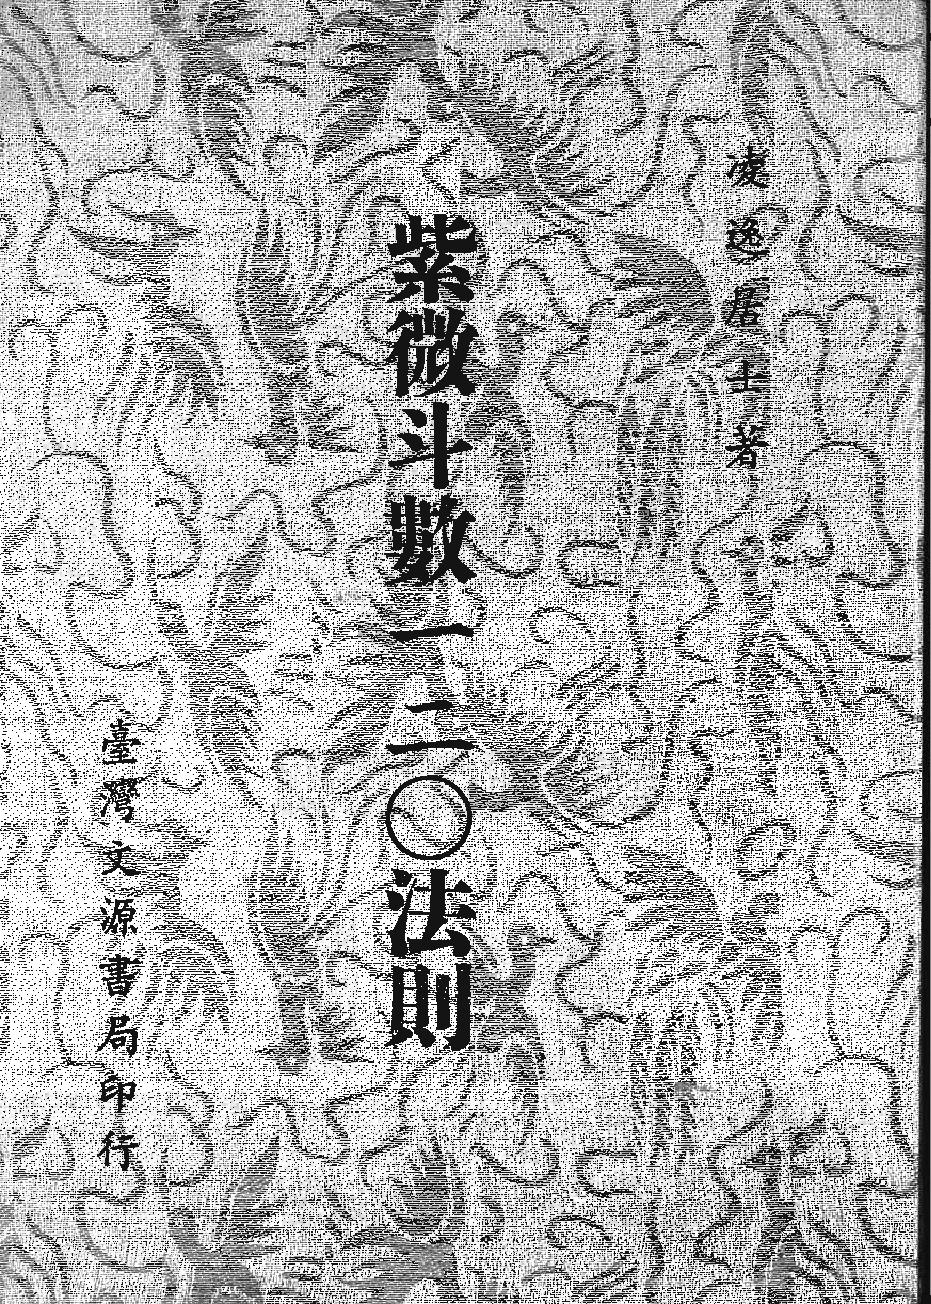 凌逸居士著
紫微斗數一二〇法則
臺灣文源書局印行